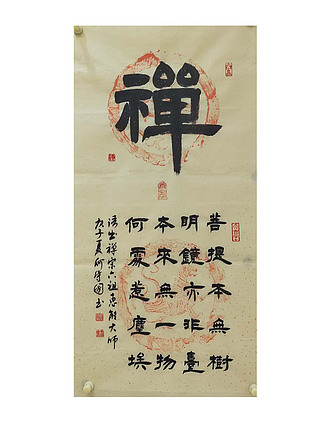 禪
菩提本無樹
明鏡亦非臺
本來無一物
何處惹塵埃
语出禪宗六祖惠能大师
庚子夏